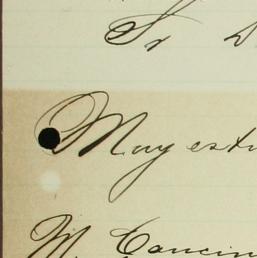 Sr D
Muy estim
M. Cancin